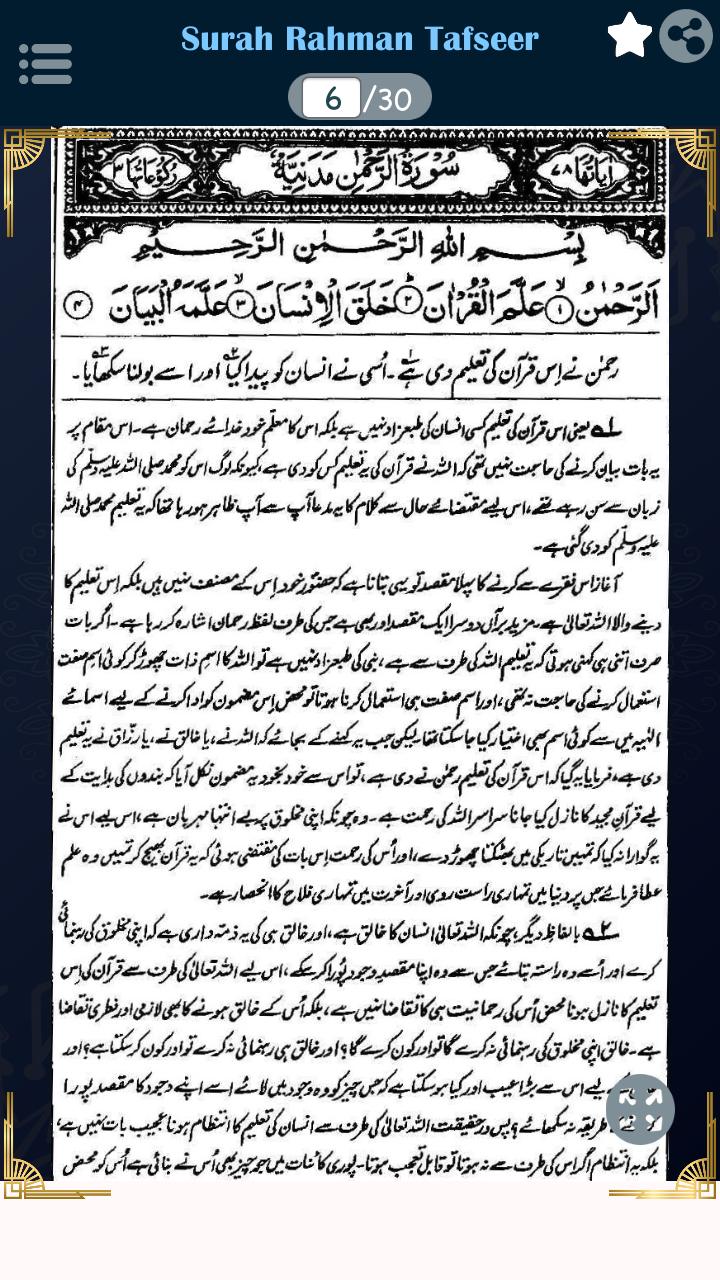 Surah Rahman Tafseer
6/30
اٰیاتھا ۷۸ سُوْرَۃُ الرَّحْمٰنِ مَدَنِیَّۃٌ رکوعاتھا ۳
بِسْمِ اللّٰهِ الرَّحْمٰنِ الرَّحِیْمِ
اَلرَّحْمٰنُ ۱ عَلَّمَ الْقُرْاٰنَ ۲ خَلَقَ الْاِنْسَانَ ۳ عَلَّمَهُ الْبَیَانَ ۴
رحمٰن نے اِس قرآن کی تعلیم دی ہے۱۔ اُسی نے انسان کو پیدا کیا۲ اور اسے بولنا سکھایا۳۔
۱؎ یعنی اس قرآن کی تعلیم کسی انسان کی طبعزاد نہیں ہے بلکہ اس کا معلّم خود خدائے رحمان ہے۔ اس مقام پر
یہ بات بیان کرنے کی حاجت نہیں تھی کہ اللہ نے قرآن کی یہ تعلیم کس کو دی ہے، کیونکہ لوگ اس کو محمد صلی اللہ علیہ وسلم کی
زبان سے سن رہے تھے، اس لیے مقتضائے حال سے کلام کا یہ مدعا آپ سے آپ ظاہر ہو رہا تھا کہ یہ تعلیم محمد صلی اللہ
علیہ وسلّم کو دی گئی ہے۔
آغاز اس فقرے سے کرنے کا پہلا مقصد تو یہی بتانا ہے کہ حضورؐ خود اِس کے مصنف نہیں ہیں بلکہ اِس تعلیم کا
دینے والا اللہ تعالیٰ ہے۔ مزید برآں دوسرا ایک مقصد اور بھی ہے جس کی طرف لفظ رحمان اشارہ کر رہا ہے۔ اگر بات
صرف اتنی ہی کہنی ہوتی کہ یہ تعلیم اللہ کی طرف سے ہے، نبی کی طبعزاد نہیں ہے تو اللہ کا اسمِ ذات چھوڑ کر کوئی اسمِ صفت
استعمال کرنے کی حاجت نہ تھی، اور اسم صفت ہی استعمال کرنا ہوتا تو محض اِس مضمون کو ادا کرنے کے لیے اسمائے
الٰہیہ میں سے کوئی اسم بھی اختیار کیا جا سکتا تھا۔ لیکن جب یہ کہنے کے بجائے کہ اللہ نے، یا خالق نے، یا رزّاق نے یہ تعلیم
دی ہے، فرمایا یہ گیا کہ اس قرآن کی تعلیم رحمٰن نے دی ہے، تو اس سے خود بخود یہ مضمون نکل آیا کہ بندوں کی ہدایت کے
لیے قرآن مجید کا نازل کیا جانا سراسر اللہ کی رحمت ہے۔ وہ چونکہ اپنی مخلوق پر بے انتہا مہربان ہے، اس لیے اس نے
یہ گوارا نہ کیا کہ تمہیں تاریکی میں بھٹکتا چھوڑ دے، اور اُس کی رحمت اِس بات کی مقتضی ہوئی کہ یہ قرآن بھیج کر تمہیں وہ علم
عطا فرمائے جس پر دنیا میں تمہاری راست روی اور آخرت میں تمہاری فلاح کا انحصار ہے۔
۲؎ بالفاظِ دیگر، چونکہ اللہ تعالیٰ انسان کا خالق ہے، اور خالق ہی کی یہ ذمّہ داری ہے کہ اپنی مخلوق کی رہنمائی
کرے اور اُسے وہ راستہ بتائے جس سے وہ اپنا مقصدِ وجود پُورا کر سکے، اس لیے اللہ تعالیٰ کی طرف سے قرآن کی اِس
تعلیم کا نازل ہونا محض اُس کی رحمانیت ہی کا تقاضا نہیں ہے، بلکہ اُس کے خالق ہونے کا بھی لازمی اور فطری تقاضا
ہے۔ خالق اپنی مخلوق کی رہنمائی نہ کرے گا تو اور کون کرے گا؟ اور خالق ہی رہنمائی نہ کرے تو اور کون کر سکتا ہے؟ اور
لیے اس سے بڑا عیب اور کیا ہو سکتا ہے کہ جس چیز کو وہ وجود میں لائے اسے اپنے وجود کا مقصد پورا
طریقہ نہ سکھائے؟ پس درحقیقت اللہ تعالیٰ کی طرف سے انسان کی تعلیم کا انتظام ہونا عجیب بات نہیں ہے،
بلکہ یہ انتظام اگر اس کی طرف سے نہ ہوتا تو قابلِ تعجب ہوتا۔ پوری کائنات میں جو چیز بھی اُس نے بنائی ہے اُس کو محض